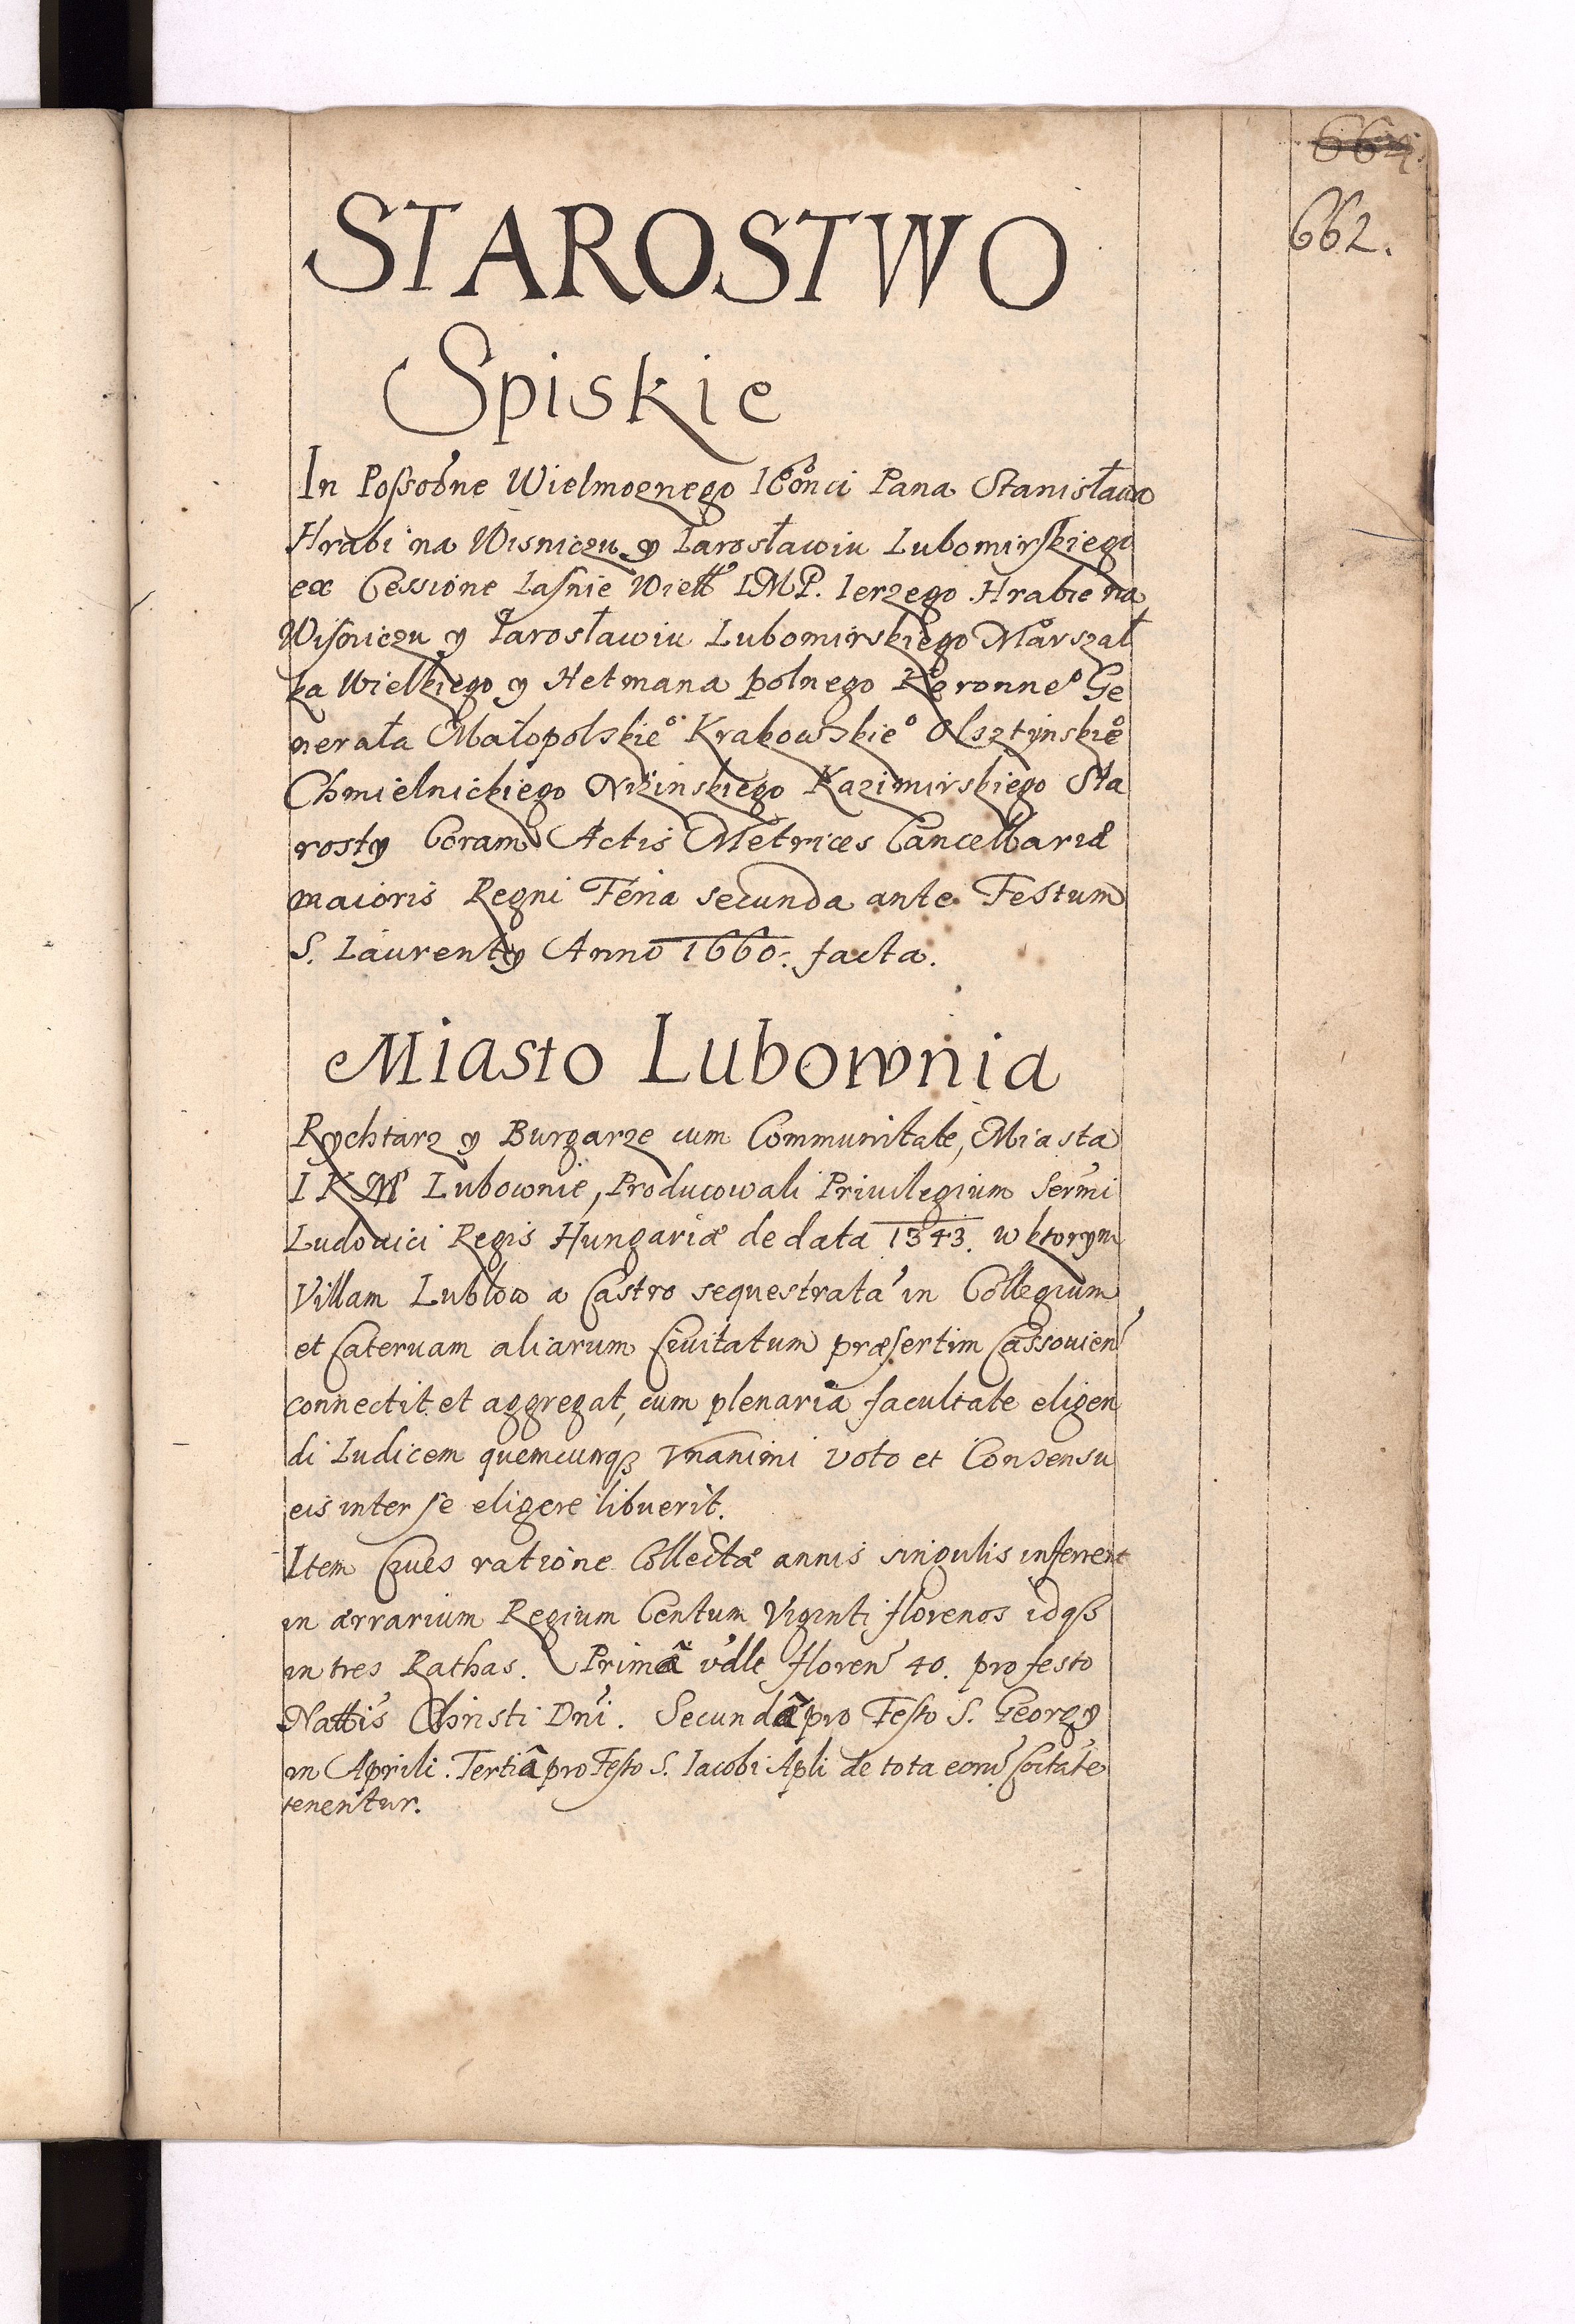 664.
662.
STAROSTWO
Spiskie
In Poſſobne Wielmoznego Pana Stanisława
Hrabi na Wisniczu y Iarosławiu Lubomirſkiego
ex Cessione Iaſnie Wiel̃ IMP. Ierzego Hrabie na
Wiſniczu y Iarosławiu Lubomirskiego Marszał
ka Wielkiego y Hetmana polnego Koronneº Ge
nerała Małopolskieº Krakowskieº Olsztynskieº
Chmielnickiego Nizinskiego Kazimirskiego Sta
rosty Coram Actis Metrices Cancellariæ
maioris Regni Feria secunda ante Festum
S. Laurenty Anno 1660. facta.
Miasto Lubownia
Rychtarz y Burgarze cum Communitate, Miasta
I K M Lubownie, Producowali Priuilegium Serm̃i
Ludouici Regis Hungariæ de data 1343. w ktorym
Villam Lublow a Castro sequestratã in Collegium
et Cateruam aliarum Ciuitatum præſertim Cassouieñ
connectit et aggregat, cum plenaria facultate eligen
di Iudicem quemcunqꝫ vnanimi voto et Consensu
eis inter ſe eligere libuerit.
Item Ciues ratione Collectæ annis singulis inferrent
in ærrarium Regium Centum Viginti florenos idqꝫ
in tres Rathas. Primã vdlt floreñ 40. pro festo
Nattis Christi Dñi. Secundã pro Feſto S. Georgy
in Aprili. Tertiã pro Feſto S. Iacobi Apli de tota eorũ
tenentur.